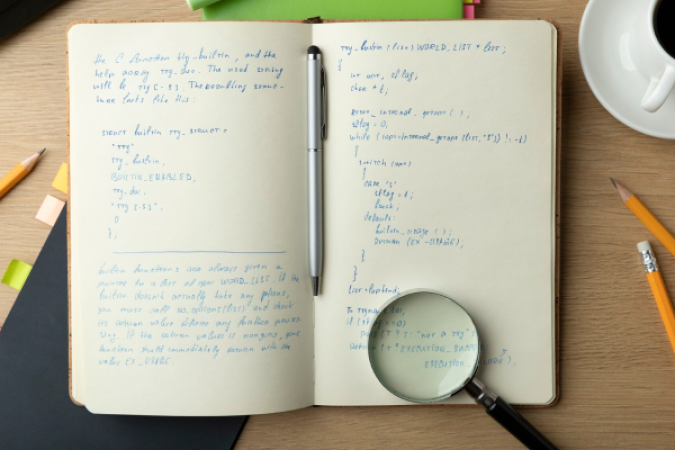 the C function tty_builtin, and the
help array tty_doc. The used string
will be tty [-s]. The resulting struc-
ture looks like this.
struct builtin tty_struct =
"tty"
tty_builtin,
BUILTIN_ENABLED,
tty_doc,
"tty [-s]",
0
};
builtin functions are always given a
pointer to a list of type WORD_LIST. If the
builtin doesn't actually take any
you must call no_options(list) and check
its return value before any further
If the return value is
function should immediately return with the
value EX_USAGE.
tty_builtin (list) WORD_LIST * list;
{
int opt, sflag;
char * t;
reset_internal_getopt ( );
sflag = 0;
while ((opt = internal_getopt (list, "s")) != -1)
{
switch (opt)
{
case 's'
sflag = 1;
break;
default:
builtin_usage ( );
return (EX_USAGE);
}
}
list = loptend;
if (sflag == 0)
"not a tty"
return (t ? EXECUTION_
EXECUTION_